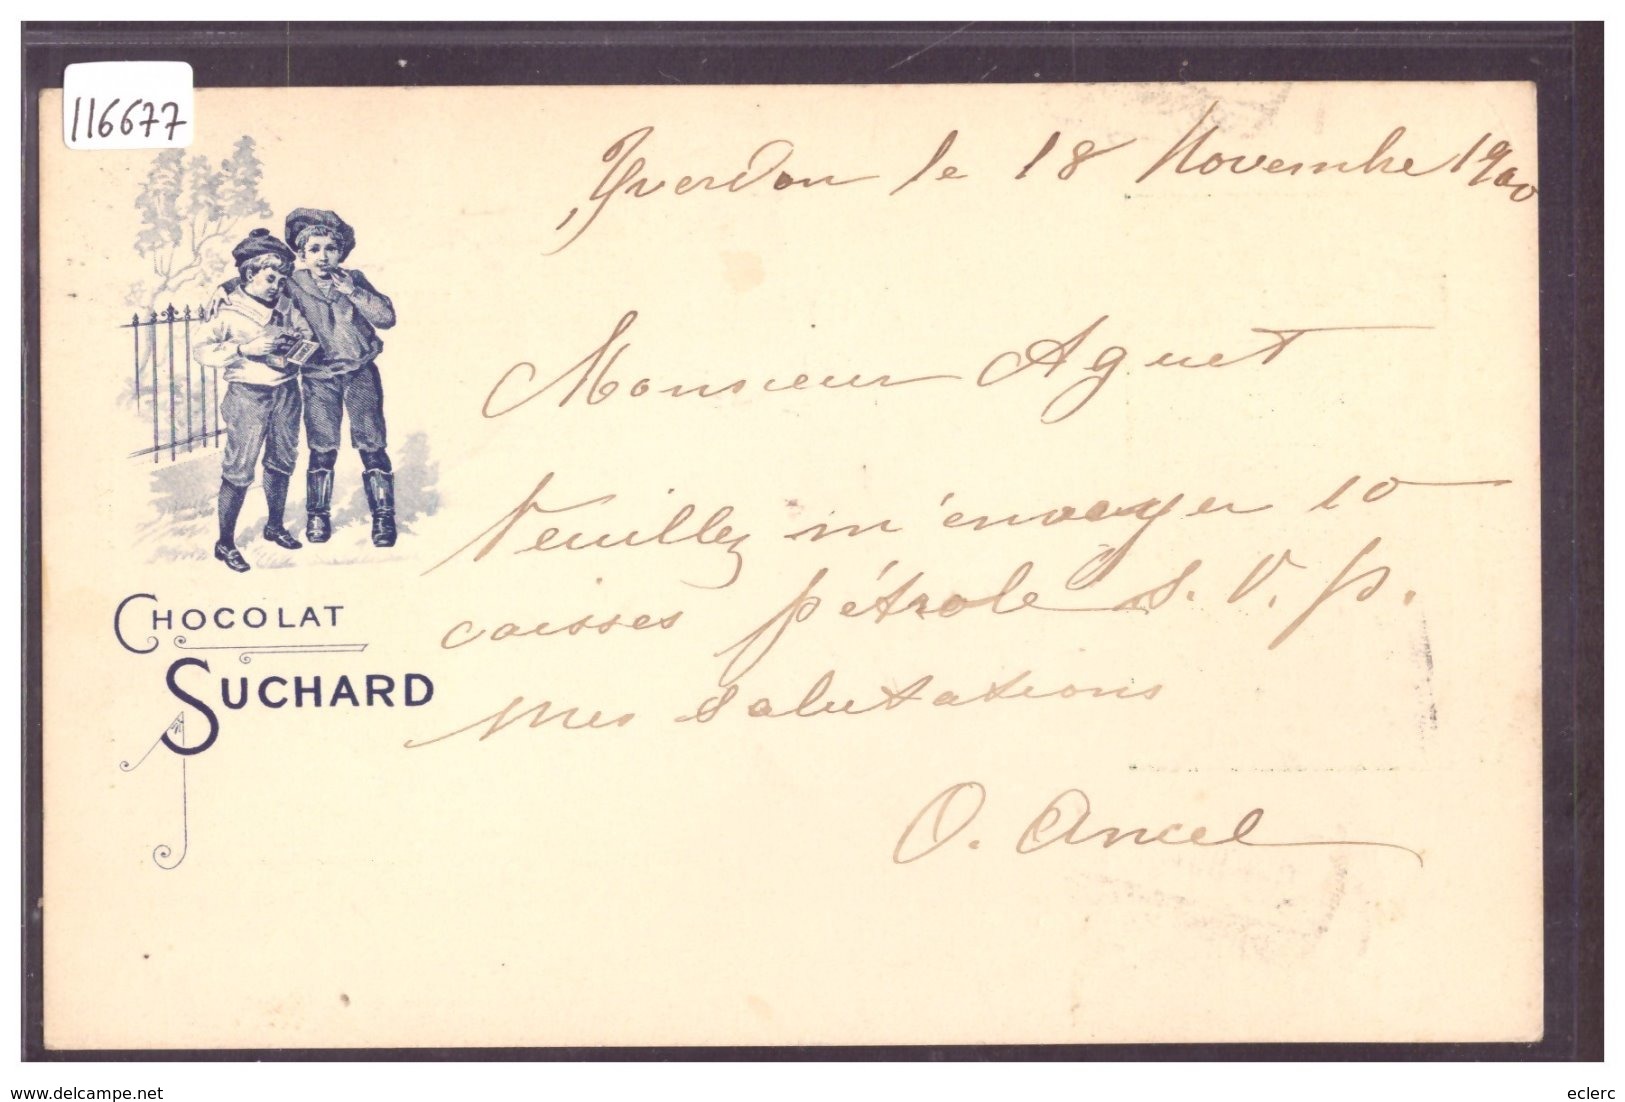 116677
Yverdon le 18 Novembre 1900
Monsieur Aguet
Veuillez m'envoyer 10
caisses pétrole s. V. p.
mes salutations
O. Ancel
CHOCOLAT
SUCHARD
www.delcampe.net
eclerc